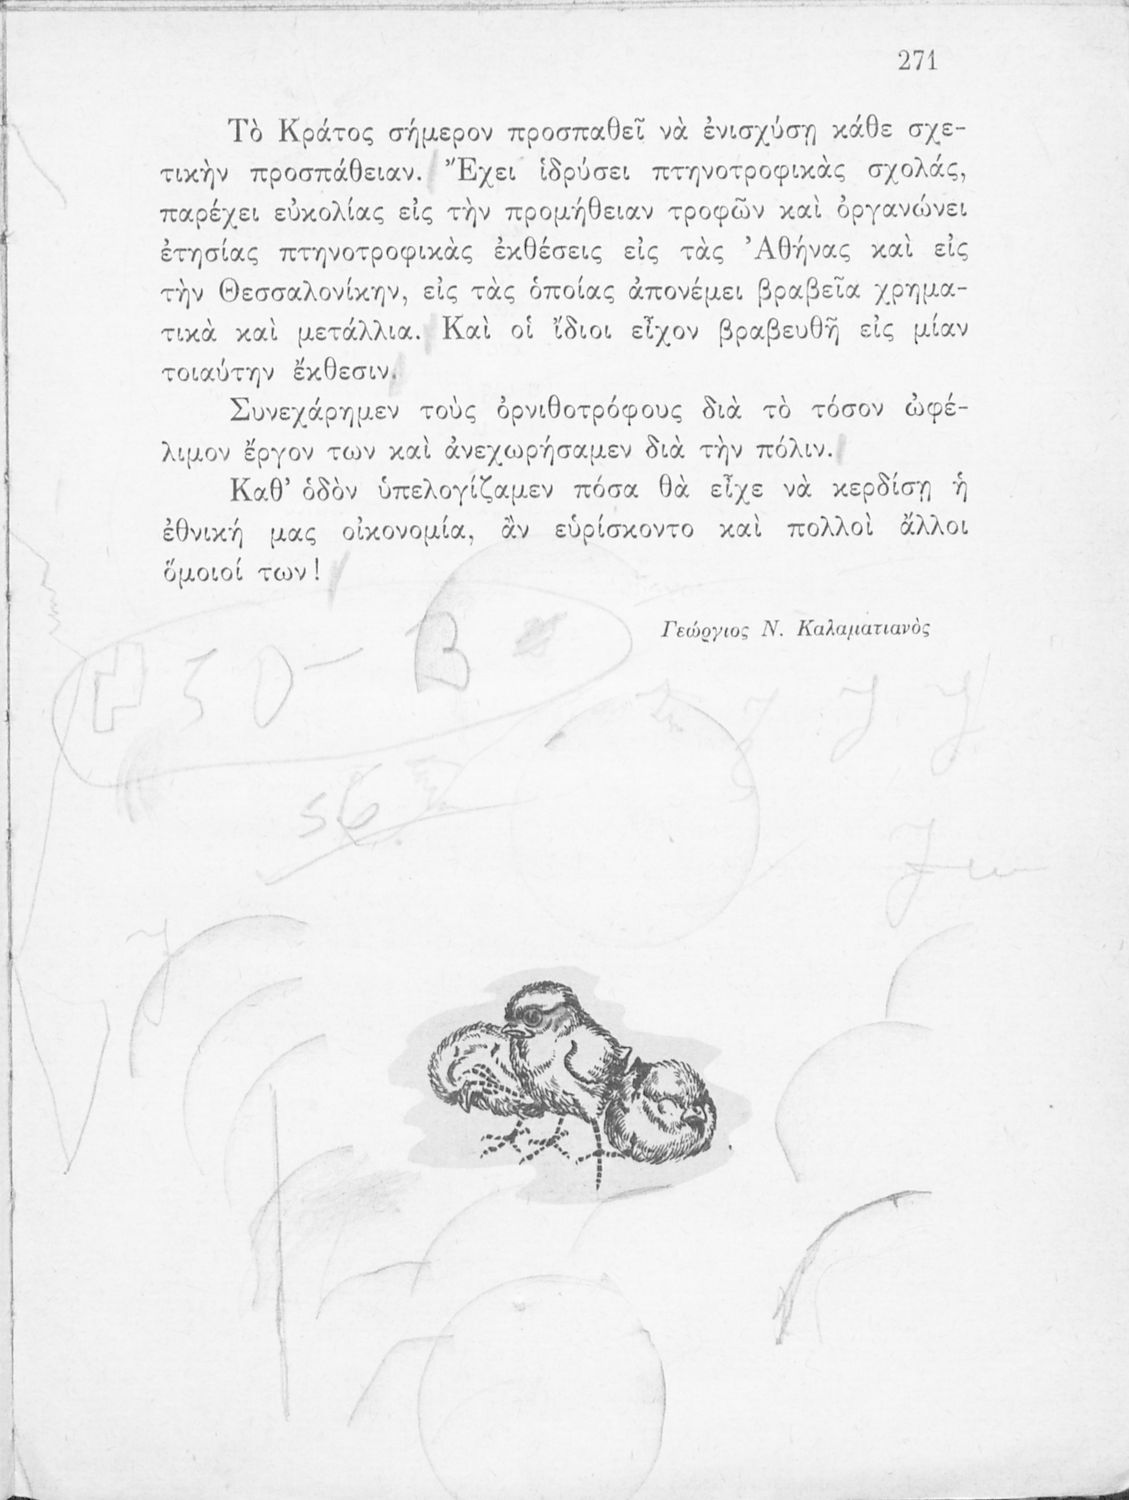 271
Τὸ Κράτος σήμερον προσπαθεῖ νὰ ἐνισχύσῃ κάθε σχε-
τικὴν προσπάθειαν. Ἔχει ἱδρύσει πτηνοτροφικὰς σχολάς,
παρέχει εὐκολίας εἰς τὴν προμήθειαν τροφῶν καὶ ὀργανώνει
ἐτησίας πτηνοτροφικὰς ἐκθέσεις εἰς τὰς Ἀθήνας καὶ εἰς
τὴν Θεσσαλονίκην, εἰς τὰς ὁποίας ἀπονέμει βραβεῖα χρημα-
τικὰ καὶ μετάλλια. Καὶ οἱ ἴδιοι εἶχον βραβευθῆ εἰς μίαν
τοιαύτην ἔκθεσιν.
Συνεχάρημεν τοὺς ὀρνιθοτρόφους διὰ τὸ τόσον ὠφέ-
λιμον ἔργον των καὶ ἀνεχωρήσαμεν διὰ τὴν πόλιν.
Καθ’ ὁδὸν ὑπελογίζαμεν πόσα θὰ εἶχε νὰ κερδίσῃ ἡ
ἐθνική μας οἰκονομία, ἂν εὑρίσκοντο καὶ πολλοὶ ἄλλοι
ὅμοιοί των!
Γεώργιος Ν. Καλαματιανὸς
56